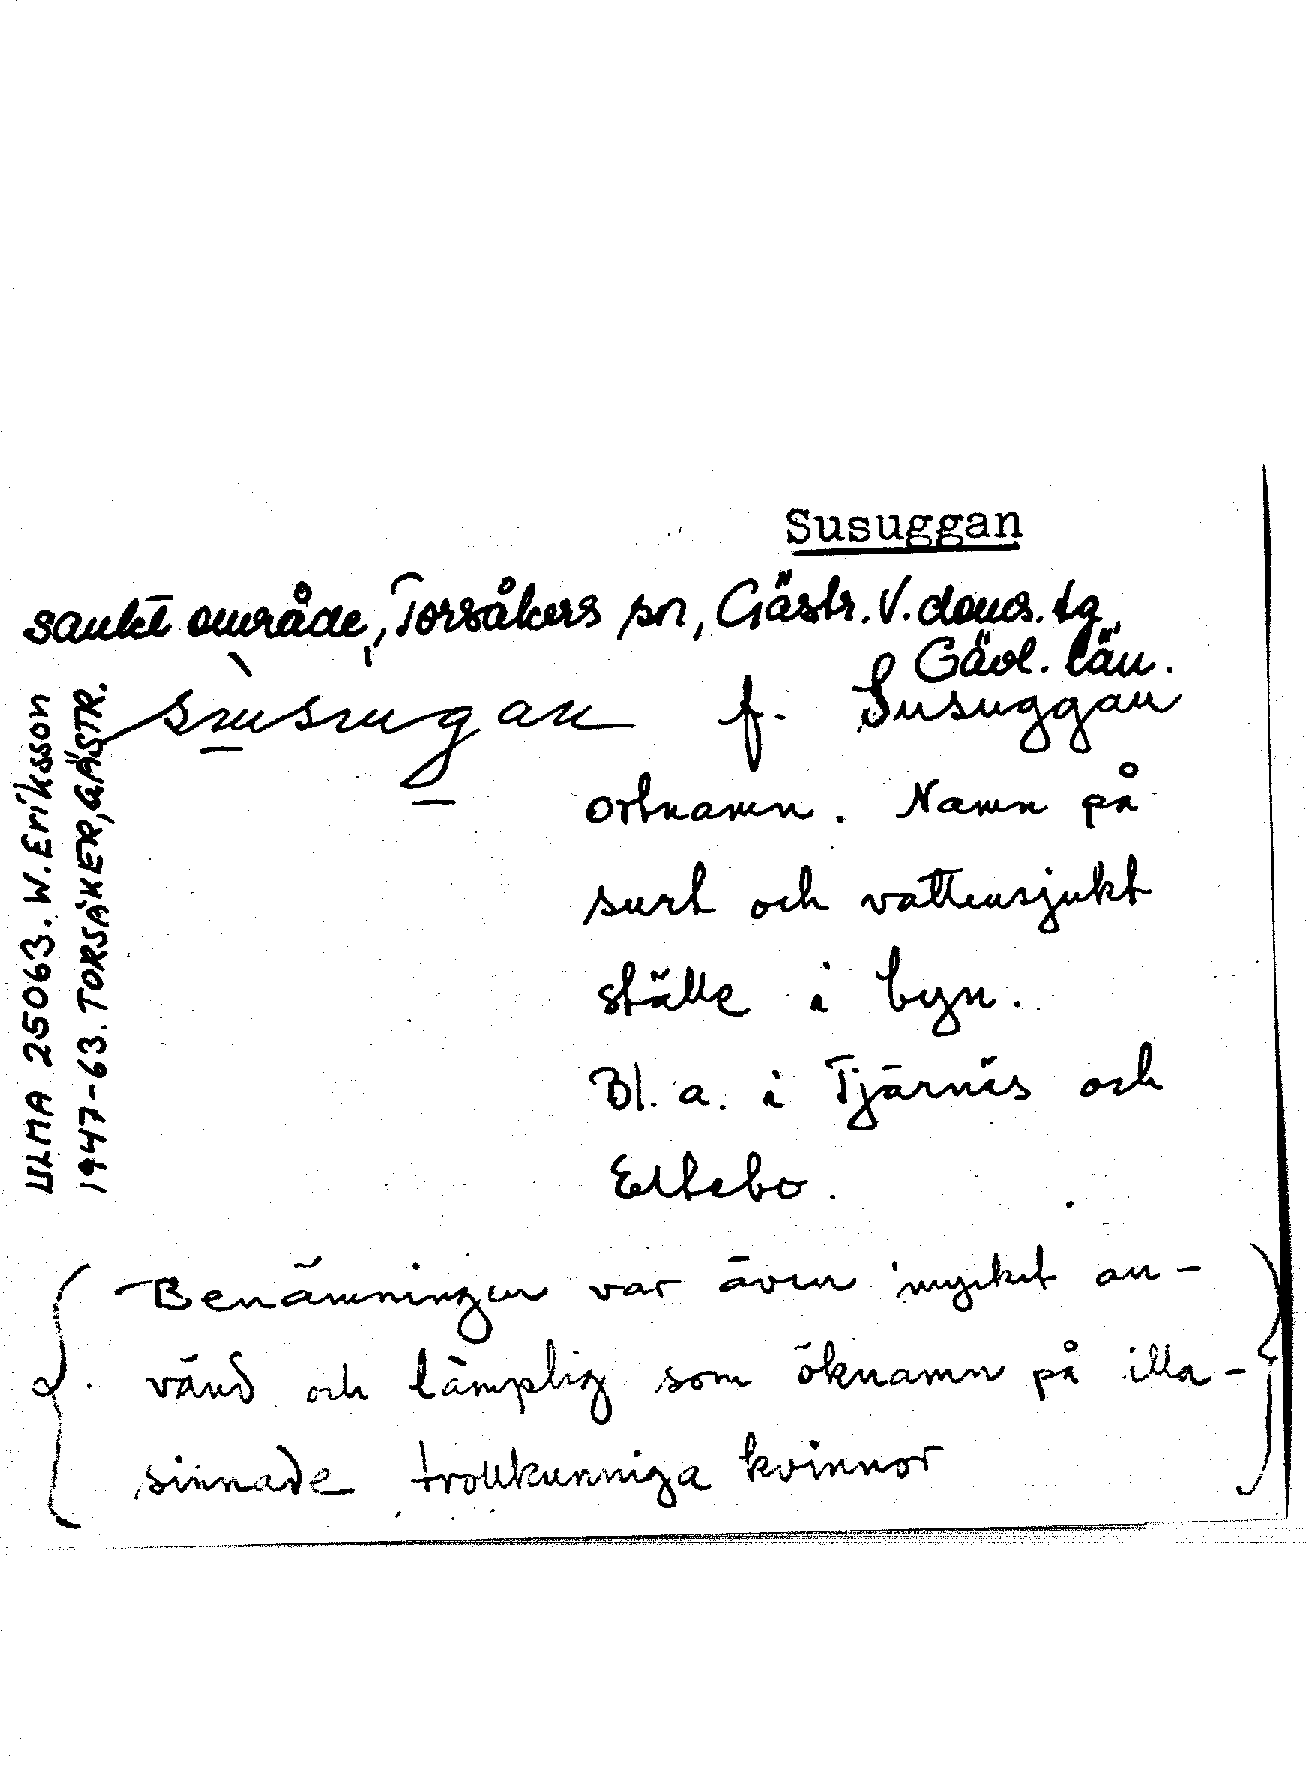 Susuggan
sankt område, Torsåkers sn, Gästr. V. doms. tg,
Gävl. län.
f. Susuggan
ortnamn. Namn på
surt och vattensjukt
ställe i byn.
Bl. a. i Tjärnäs och
Eltebo.
Benämningen var även mycket an-
vänd och lämplig som öknamn på illa-
sinnade trollkunniga kvinnor
ULMA 25063. W. Eriksson
1947-63. TORSÅKER, GÄSTR.